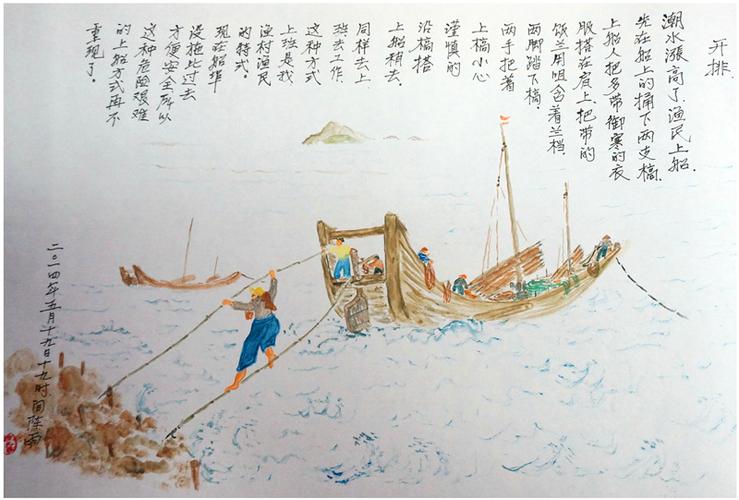 开排.
潮水漲高了.渔民上船.
先在船上的捅下两支槁.
上船人把多带御寒的夜
服搭在肩上.把带的
饭兰用咀含着兰档.
两脚踏下槁.
两手把着
上槁小心
谨慎的
沿槁搭
上船稍去.
同样去上
班去工作.
这种方式
上班是我
渔村渔民
的特式.
现在船埠
设施比过去
方便安全所以
这种危险艰难
的上船方式再不
重现了.
二〇一四年五月十九日十九时间阵雨